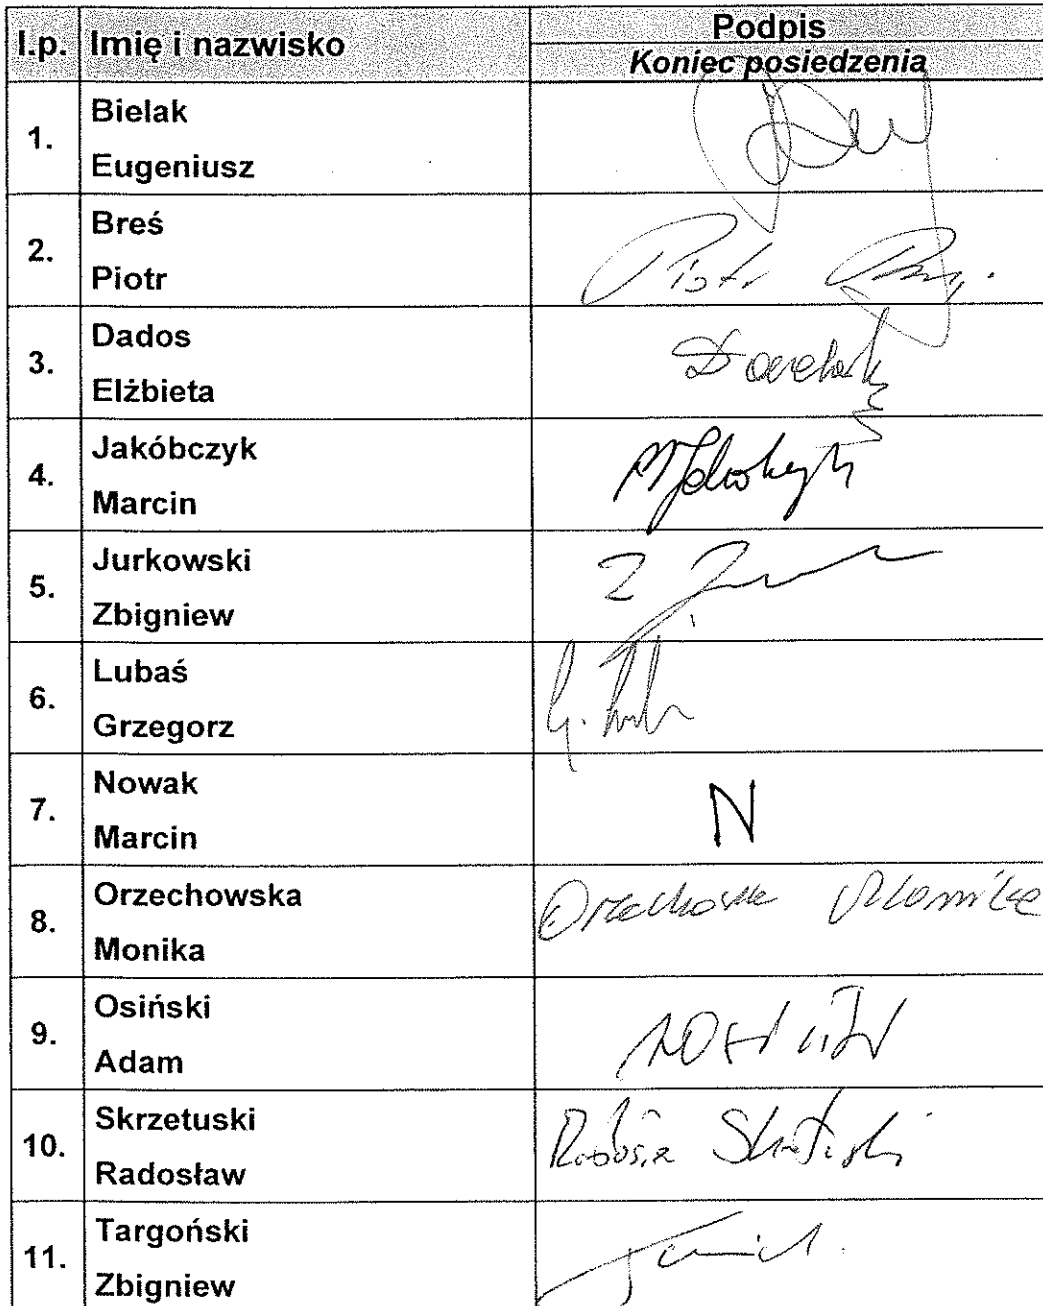 l.p. Imię i nazwisko Podpis
Koniec posiedzenia
1. Bielak
Eugeniusz
2. Breś
Piotr
Piotr
3. Dados
Elżbieta
4. Jakóbczyk
Marcin
5. Jurkowski
Zbigniew
Z
6. Lubaś
Grzegorz
G.
7. Nowak
Marcin
N
8. Orzechowska
Monika
Orzechowska Monika
9. Osiński
Adam
10. Skrzetuski
Radosław
11. Targoński
Zbigniew